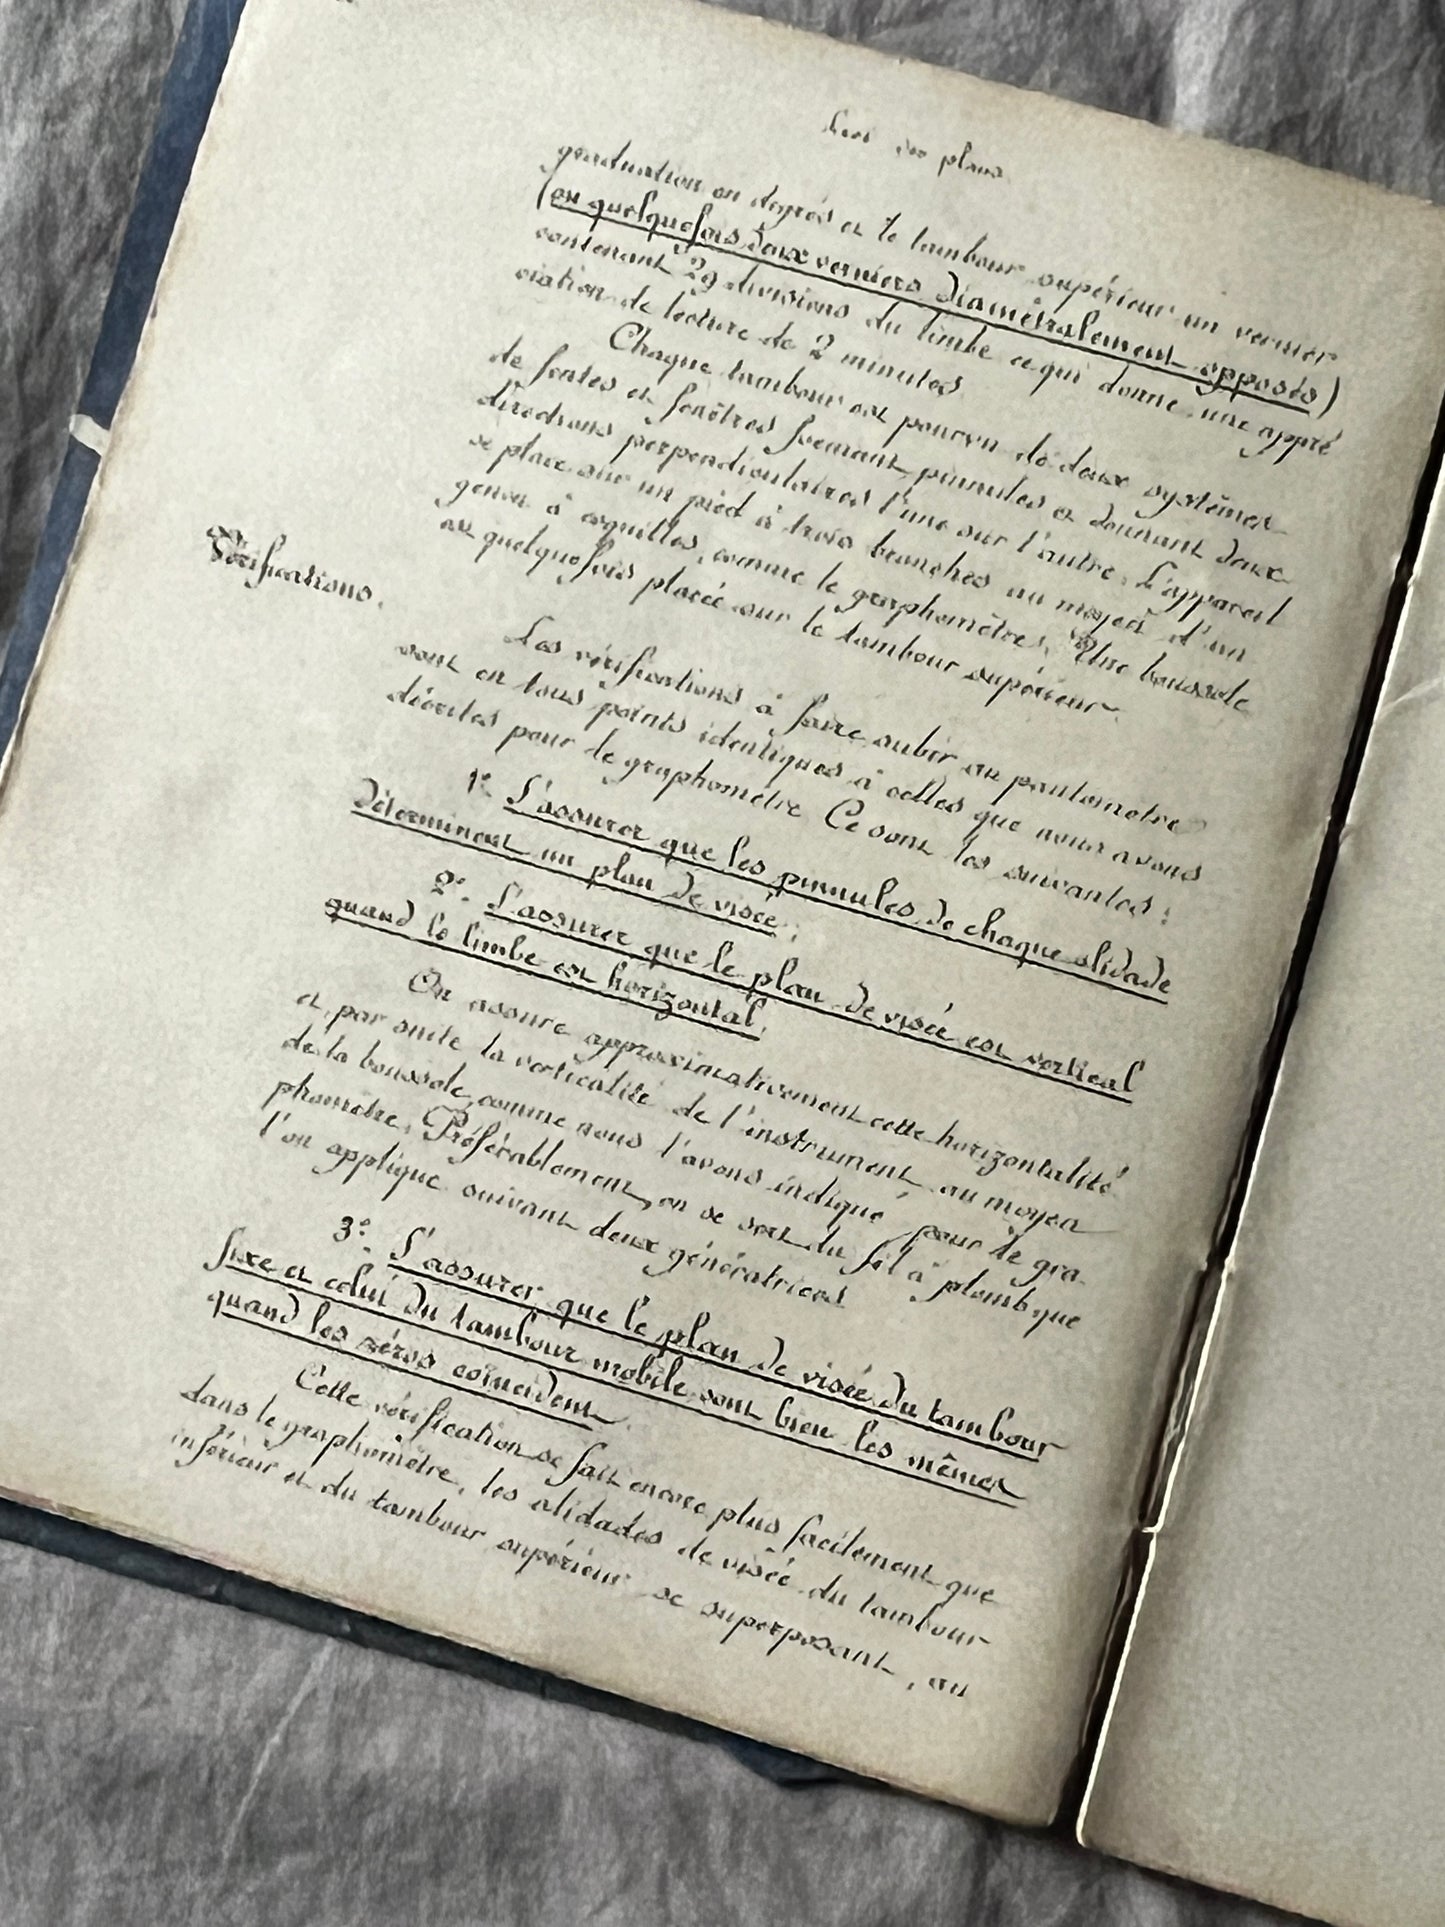 Levé des plans
graduation en degrés et le tambour supérieur un vernier
(ou quelquefois deux verniers diamétralement opposés)
contenant 29 divisions du limbe ce qui donne une appré
ciation de lecture de 2 minutes
Chaque tambour est pourvu de deux systèmes
de fentes et fenêtres formant pinnules et donnant deux
directions perpendiculaires l'une sur l'autre. L'appareil
se place sur un pied à trois branches au moyen d'un
genou à coquilles, comme le graphomètre. Une boussole
est quelquefois placée sur le tambour supérieur.
Vérifications.
Les vérifications à faire subir au pantomètre
sont en tous points identiques à celles que nous avons
décrites pour le graphomètre Ce sont les suivantes:
1°. S'assurer que les pinnules de chaque alidade
déterminent un plan de visée;
2°. S'assurer que le plan de visée est vertical
quand le limbe est horizontal.
On assure approximativement cette horizontalité
et, par suite la verticalité de l'instrument, au moyen
de la boussole, comme nous l'avons indiqué pour le gra-
phomètre. Préférablement, on se sert du fil à plomb que
l'on applique suivant deux génératrices
3°. S'assurer que le plan de visée du tambour
fixe et celui du tambour mobile sont bien les mêmes
quand les zéros coïncident.
Cette vérification se fait encore plus facilement que
dans le graphomètre, les alidades de visée du tambour
inférieur et du tambour supérieur se superposant, au